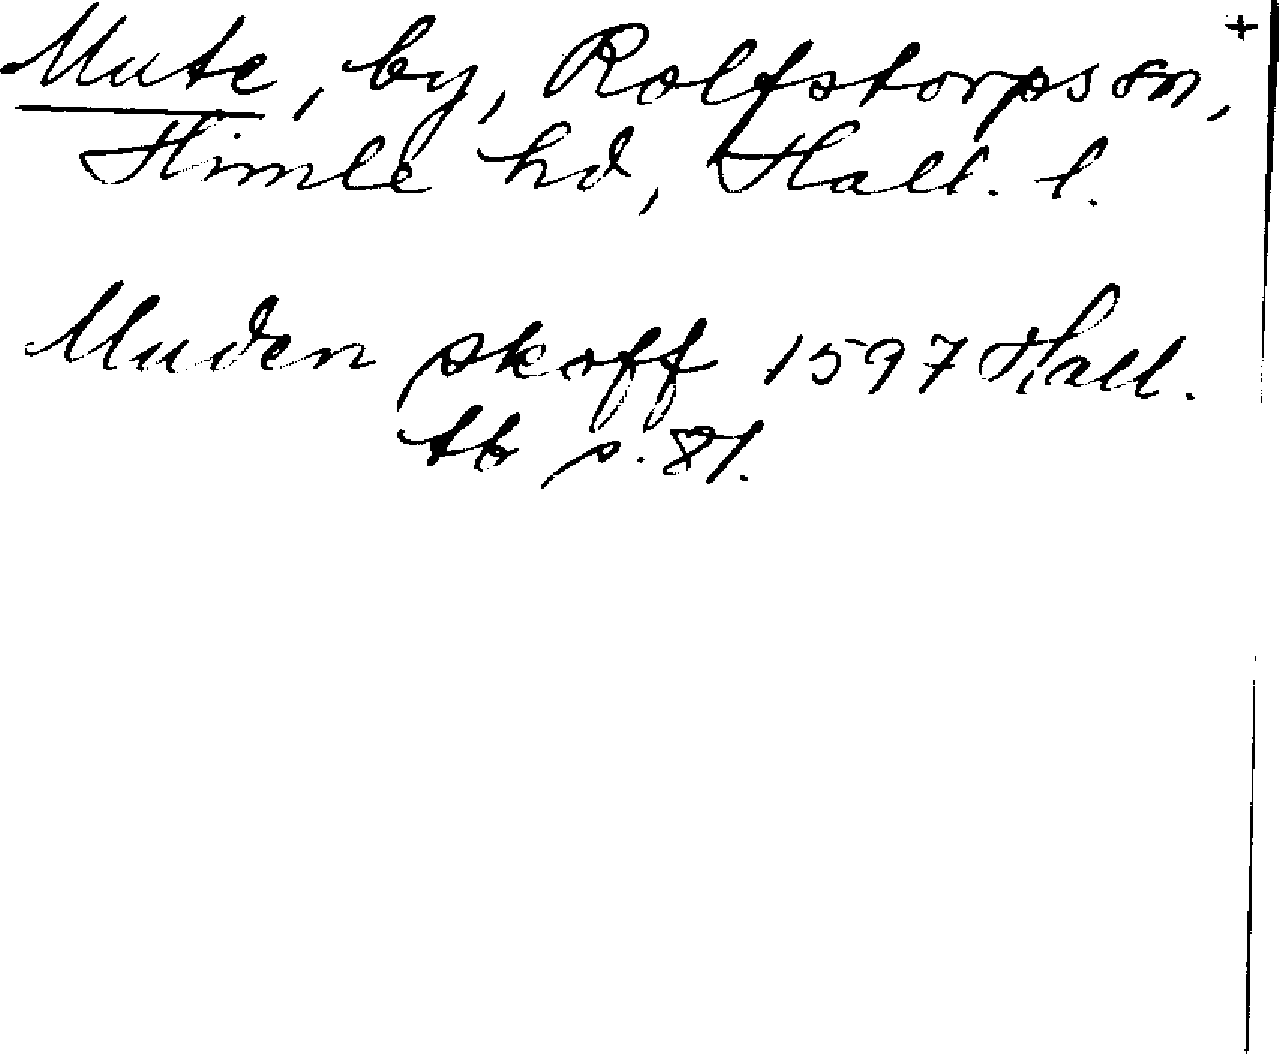 Mute, by, Rolfstorps sn, +
Himle hd, Hall. l.
Muden skoff 1597 Hall.
tb s. 81.